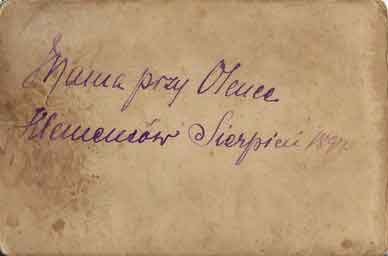 Mama przy Olence
Klemensów Sierpień